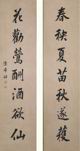 春秧夏苗秋遂穫
花勸鶯酬酒欲仙